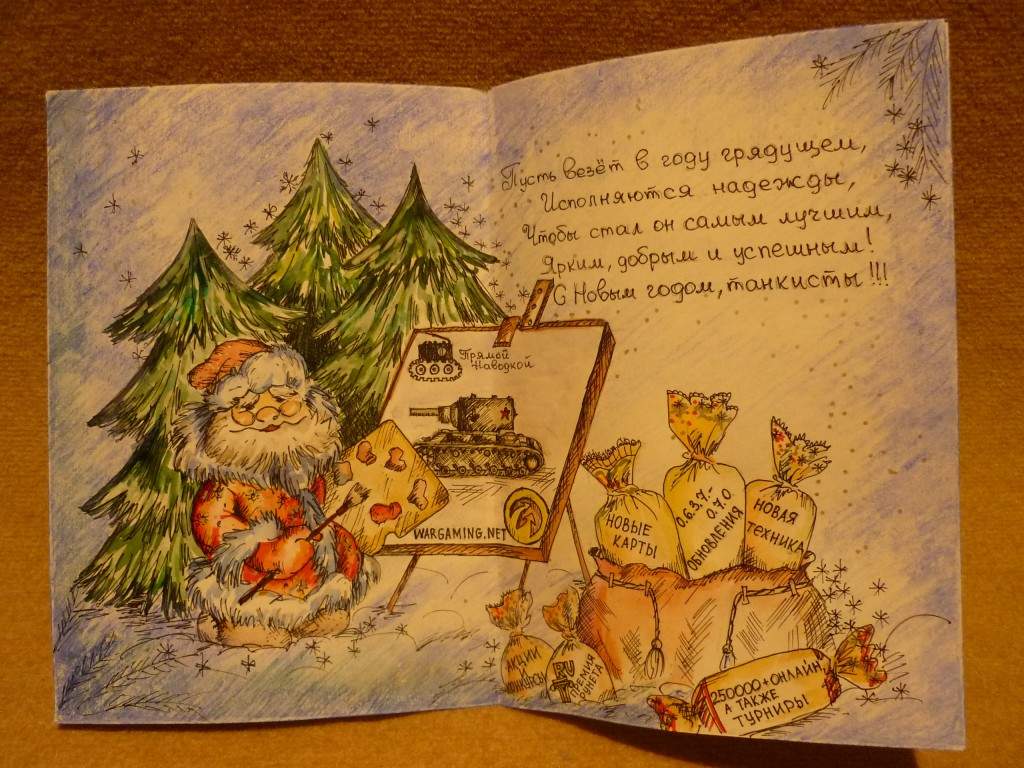 Пусть везёт в году грядущем,
Исполняются надежды,
Чтобы стал он самым лучшим,
Ярким, добрым и успешным!
С Новым годом, танкисты!!!
Прямой
Наводкой
WARGAMING.NET
НОВЫЕ
КАРТЫ
0.6.3.7.-
0.7.0
ОБНОВЛЕНИЯ
НОВАЯ
ТЕХНИКА
АКЦИИ
И
КОНКУРСЫ
RU
ПРЕМИЯ
РУНЕТА
250000+ОНЛАЙН,
А ТАКЖЕ
ТУРНИРЫ